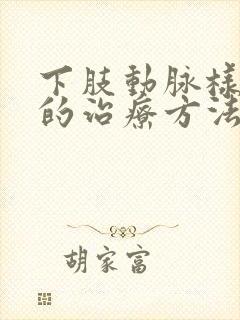 下肢動脉樣
的治療方法
胡家富